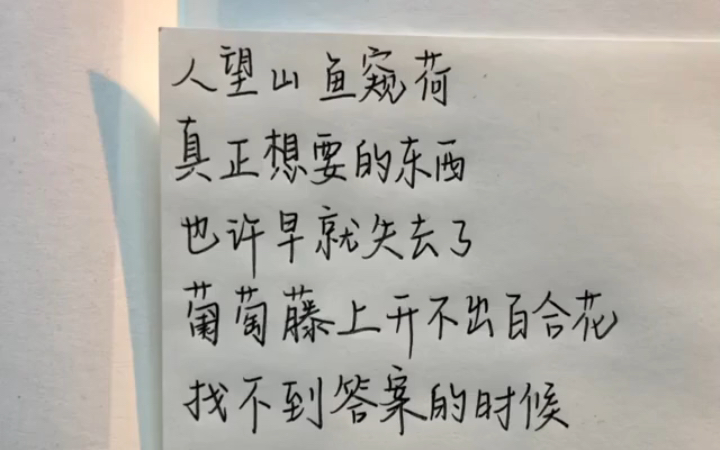 人望山 鱼窥荷
真正想要的东西
也许早就失去了
葡萄藤上开不出百合花
找不到答案的时候